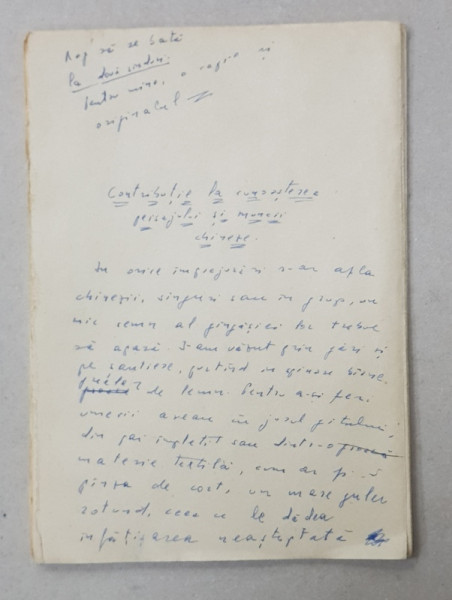 Rog să se bată
la două rânduri
pentru mine, o copie și
originalul
Contribuție la cunoașterea
peisajului și muncii
chineze.
În orice împrejurări s-ar afla
chinezii, singuri sau în grup, un
mic semn al gingășiei lor trebue
să apară. I-am văzut prin gări și
pe șantiere, purtând în spinare
de lemn. Pentru a-și feri
umerii aveau în jurul gâtului,
din pai împletit sau dintr-o
materie textilă, cum ar fi
pânza de cort, un mare guler
rotund, ceea ce le dădea
înfățișarea neașteptată